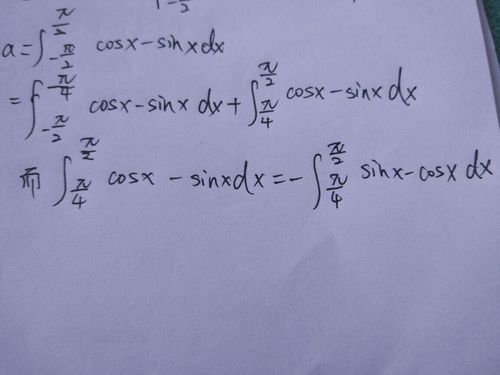 1-π/2
a=∫_{-π/2}^{π/2} cosx-sinxdx
=∫_{-π/2}^{π/4} cosx-sinx dx+∫_{π/4}^{π/2} cosx-sinx dx
而 ∫_{π/4}^{π/2} cosx-sinxdx=-∫_{π/4}^{π/2} sinx-cosx dx